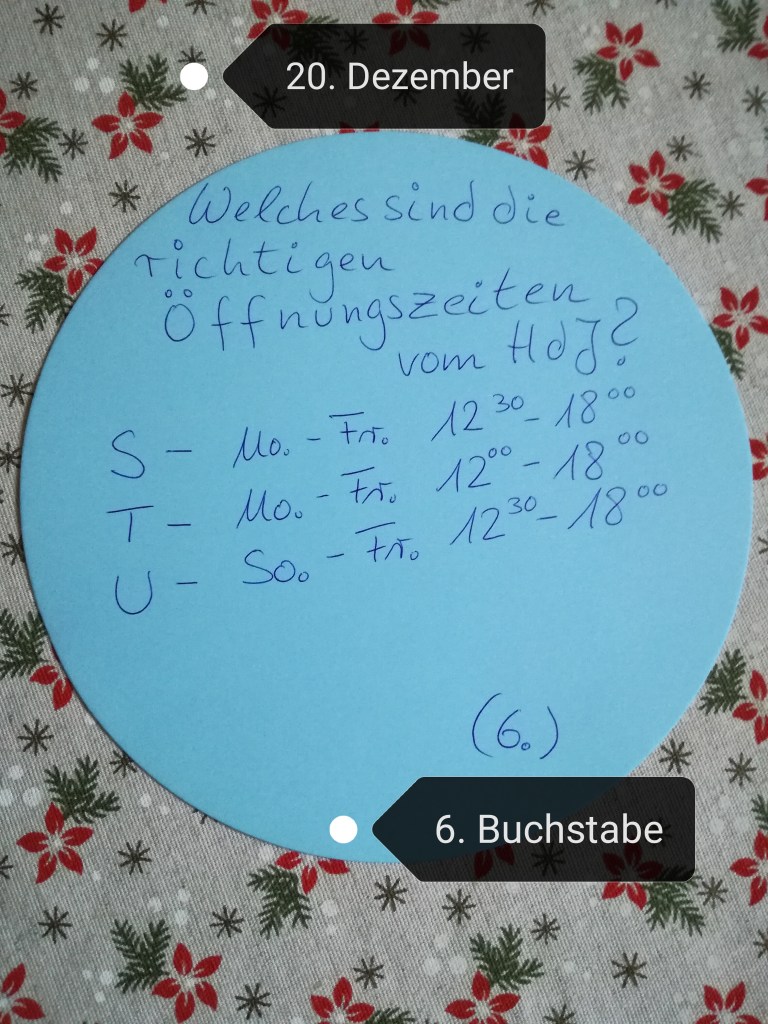 20. Dezember
Welches sind die
richtigen
Öffnungszeiten
vom HdJ?
S – Mo. – Fr. 12³⁰ – 18⁰⁰
T – Mo. – Fr. 12⁰⁰ – 18⁰⁰
U – So. – Fr. 12³⁰ – 18⁰⁰
(6.)
6. Buchstabe